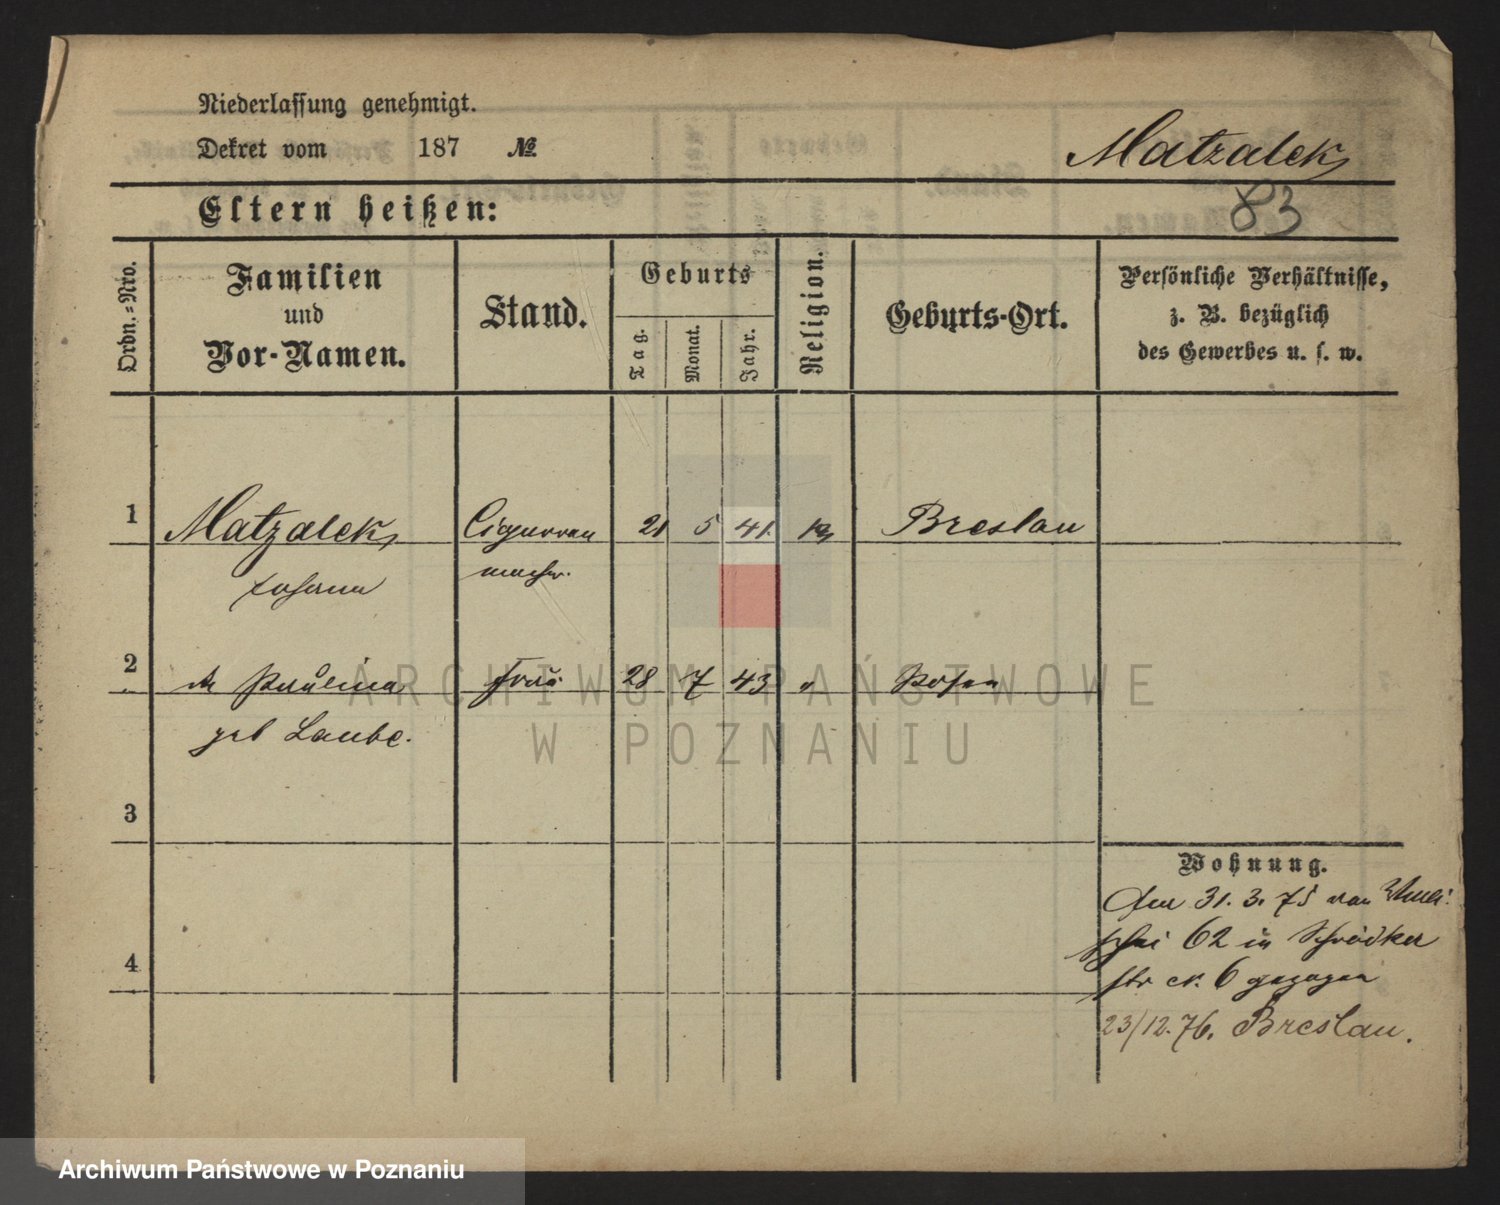 Niederlassung genehmigt.
Dekret vom 187 №
Matzalek
83
Eltern heißen:
Ordn.-Nro.
Familien
und
Vor-Namen.
Stand.
Geburts
Tag.
Monat.
Jahr.
Religion.
Geburts-Ort.
Persönliche Verhältnisse,
z. B. bezüglich
des Gewerbes u. s. w.
1 Matzalek Cigarren 21 5 41. Breslau
Johann mach.
2 Paulina Frau 28 7 43 " Posen
geb Laube.
3
Wohnung.
Am 31. 3. 75 von
62 in Schrodker
4
str 6 gezogen
23/12.76. Breslau.
ARCHIWUM PAŃSTWOWE
W POZNANIU
Archiwum Państwowe w Poznaniu